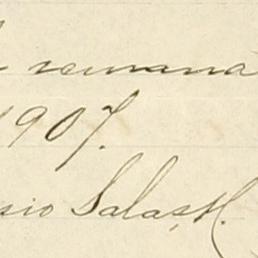 semana
1907.
sio Salas H.